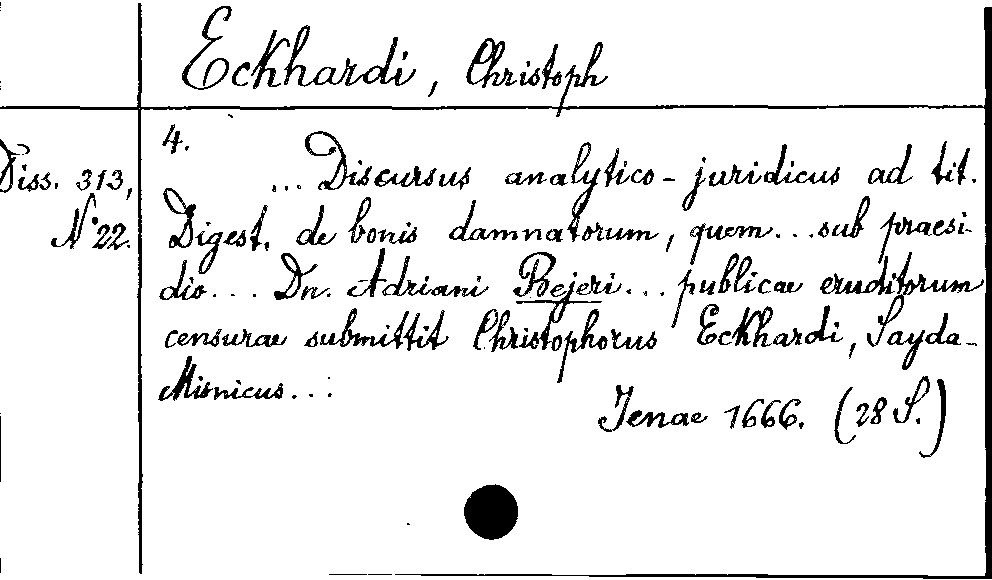 Eckhardi, Christoph
4.
Diss. 313,
N° 22.
... Discursus analytico-juridicus ad tit.
Digest. de bonis damnatorum, quem... sub praesi-
dio... Dn. Adriani Bejeri... publicae eruditorum
censurae submittit Christophorus Eckhardi, Sayda-
Misnicus...
Jenae 1666. (28 S.)